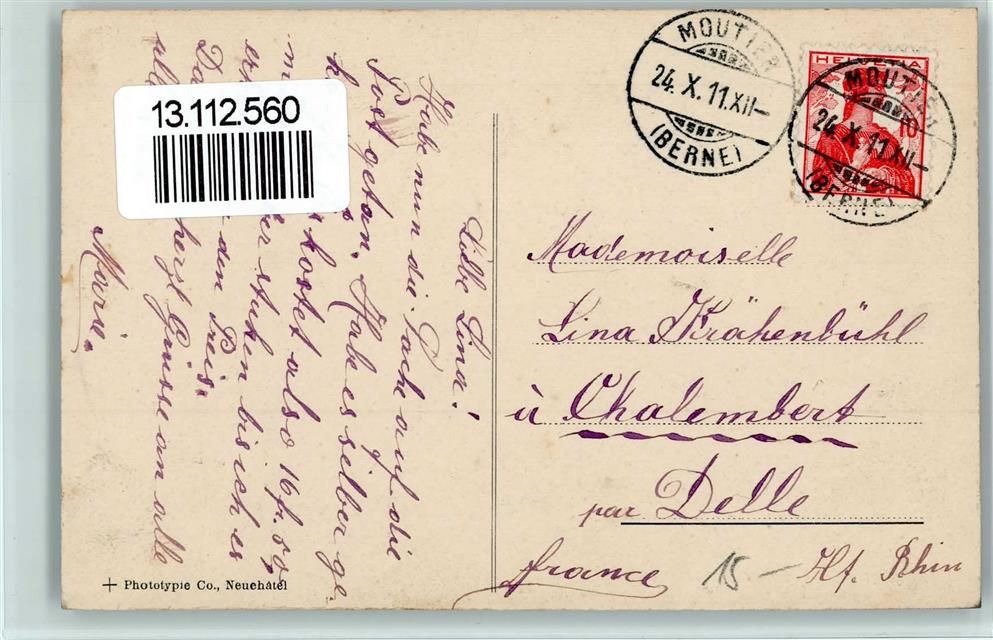 13.112.560
MOUTIER
24. X. 11. XII–
(BERNE)
HELVETIA
10
MOUTIER
24. X. 11. XII–
(BERNE)
Liebe Lina!
Habe nun die Sache auf die
Post getan. Habe es selber ge
kostet also 16 fr. 60,
bis ich es
den Preis.
herzl Grüsse an alle
Maria.
Mademoiselle
Lina Krähenbühl
à Chalembert
par Delle
france Ht. Rhin
15 –
+ Phototypie Co., Neuchâtel